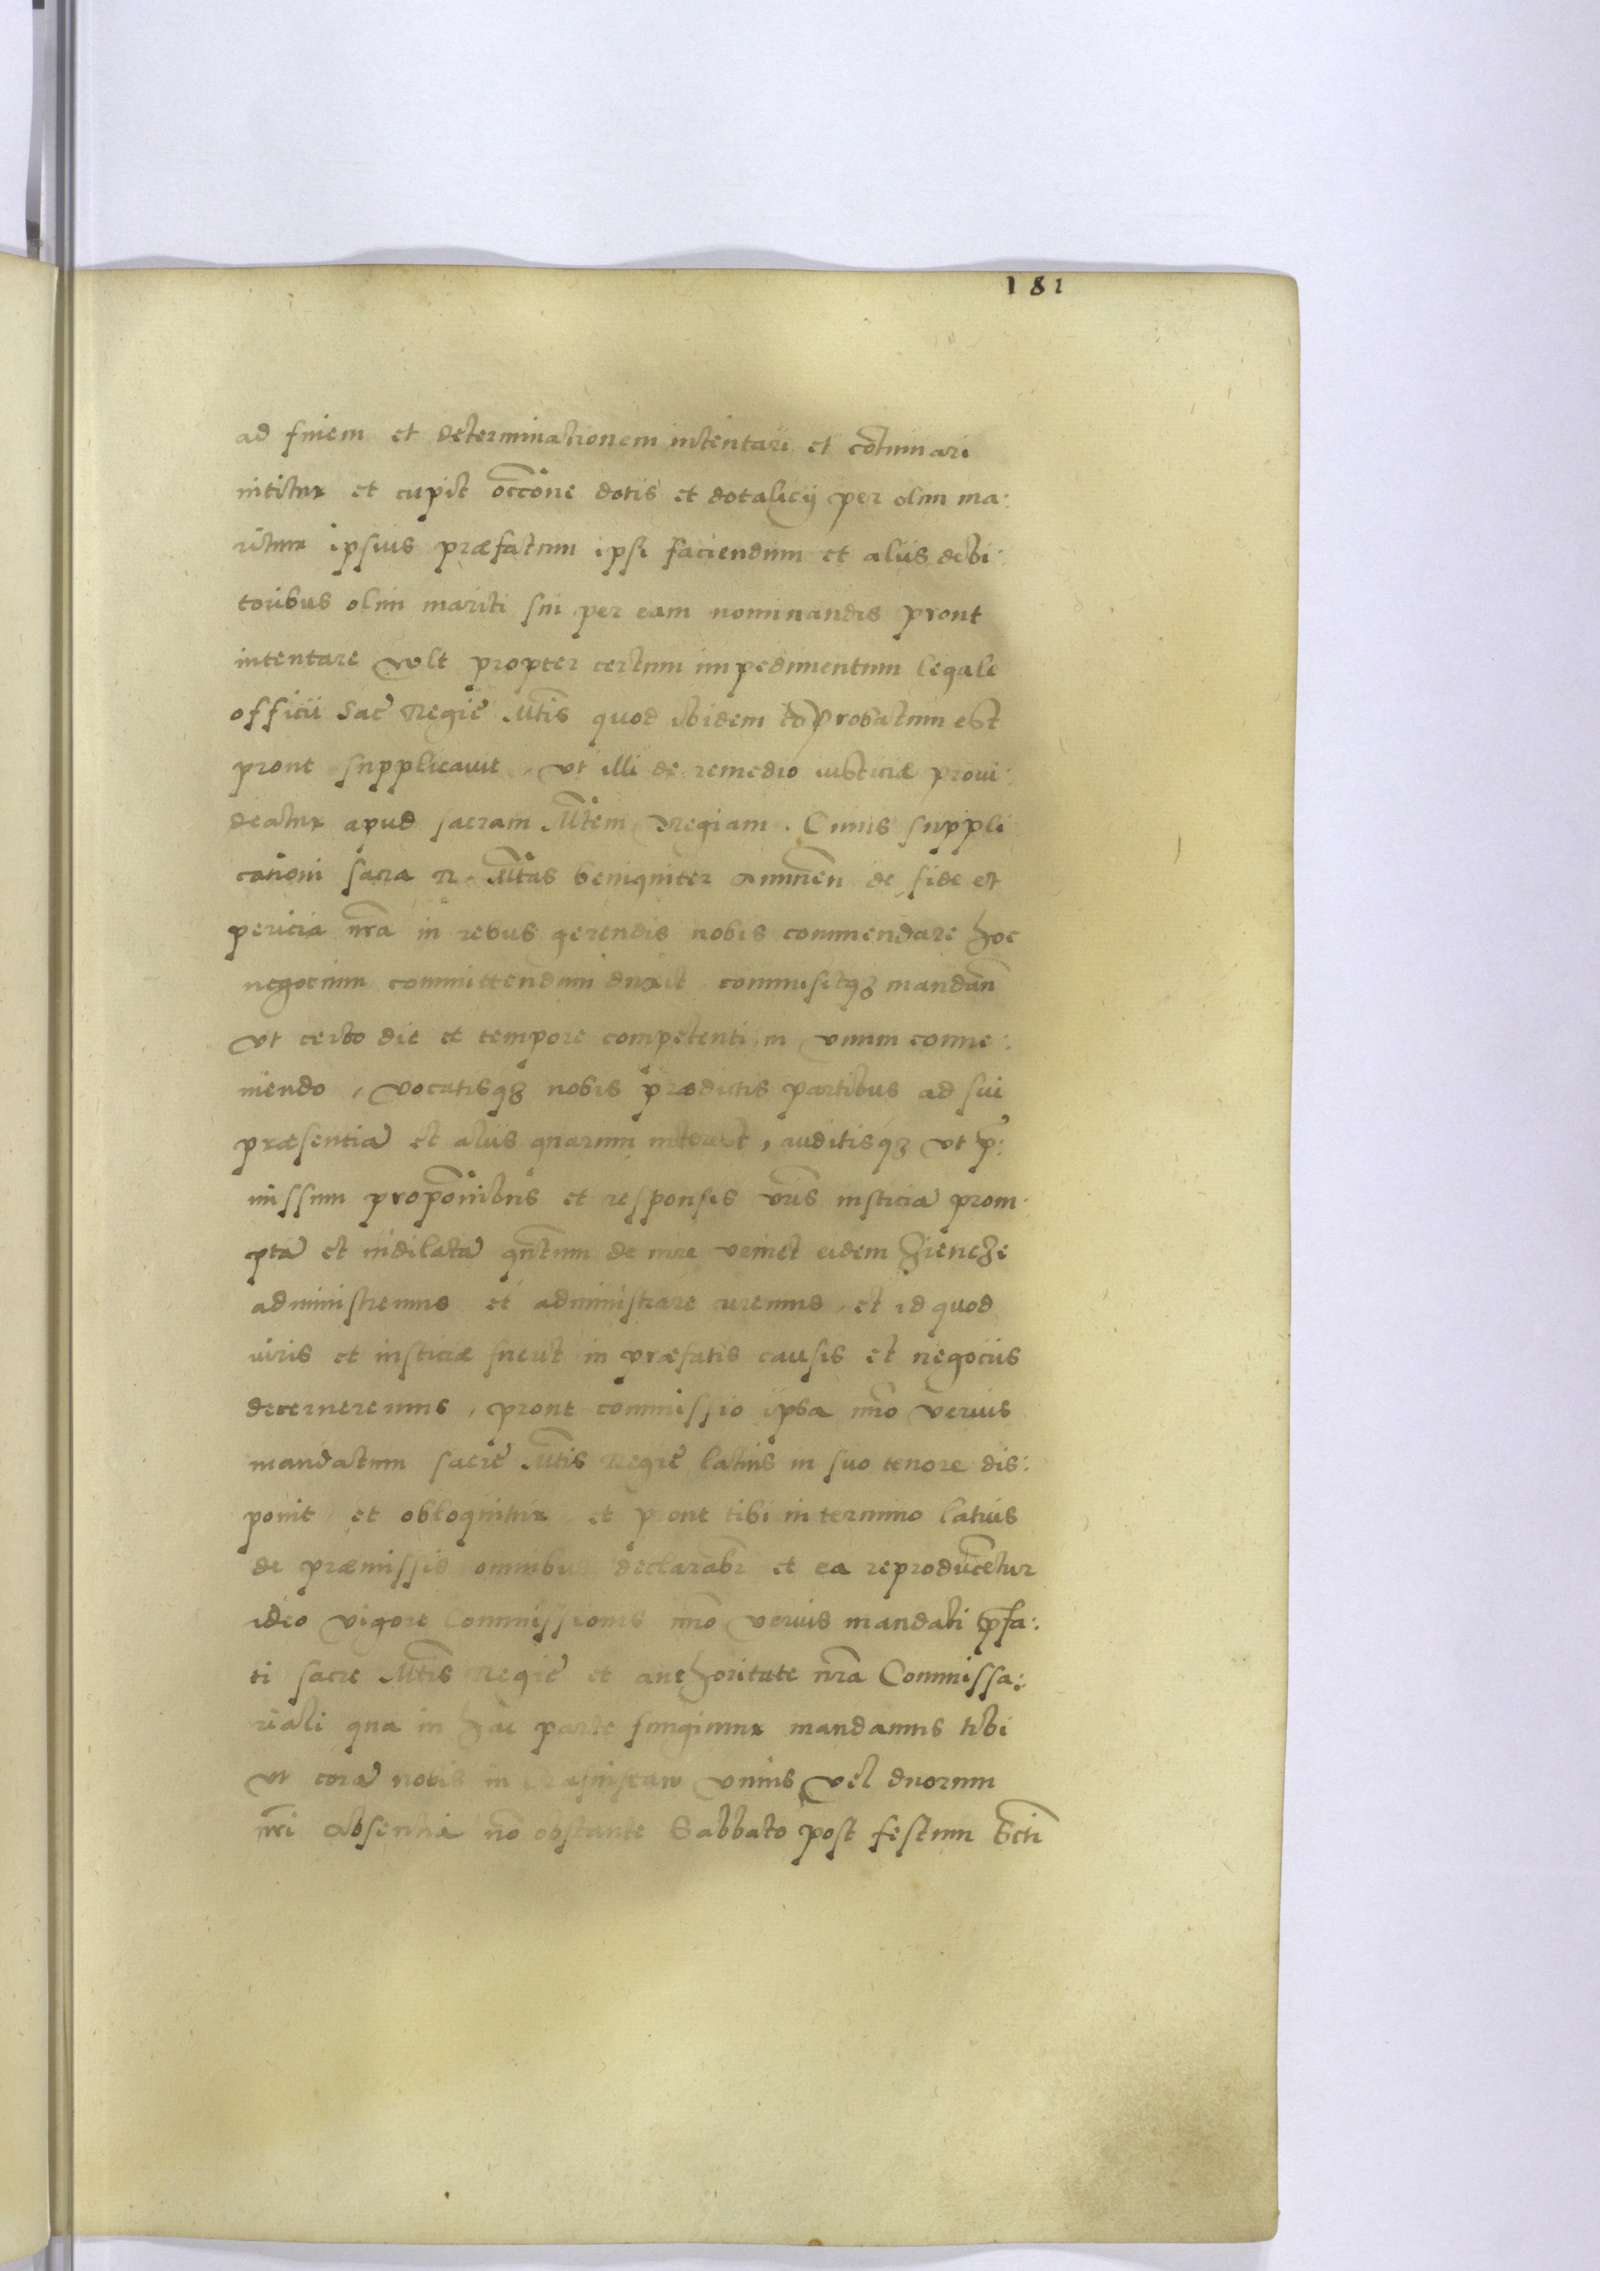 181
ad finem et determinationem intentari et cõtinuari
nititur et cupit occõne dotis et dotalicij per olim ma:
ritum ipsius præfatum ipsi faciendum et aliis debi:
toribus olim mariti sui per eam nominandis prout
intentare volt propter certum impedimentum legale
officii Sac̃ Regie Mt̃is quod ibidem cõprobatum est
prout supplicavit, ut illi de remedio iusticiæ provi:
deatur apud sacram Mt̃em Regiam. Cuius suppli
cationi sacra R. Mt̃as benigniter Annuen̄ de fide et
pericia nr̃a in rebus gerendis nobis commendare hoc
negocium committendam duxit commisitq3 mandan̄
Ut certo die et tempore competenti in unum conve:
niendo, vocatisq3 nobis prædictis partibus ad sui
præsentiã et aliis quarum interest, auditisq3 ut p̃:
missum propõnibus et responsis vr̃is iusticiã prom:
ptã et indilatã qñtum de iure veniet eidem
administremus et administrare curemus, et id quod
iuris et iusticiæ fuerit in præfatis causis et negociis
decerneremus, prout commissio ipsa im̃o verius
mandatum sacre Mt̃is Regie latius in suo tenore dis:
ponit et obloquitur et prout tibi in termino latius
de præmissis omnibus declarabr̃ et ea reproducẽtur
ideo vigore Commissionis im̃o verius mandati p̃fa:
ti sacre Mt̃is Regie et authoritate nr̃a Commissa:
riali qua in hac parte fungimur mandamus tibi
ut corã nobis in unius vel duorum
nr̃i absentia nõ obstante Sabbato post festum Sct̃i